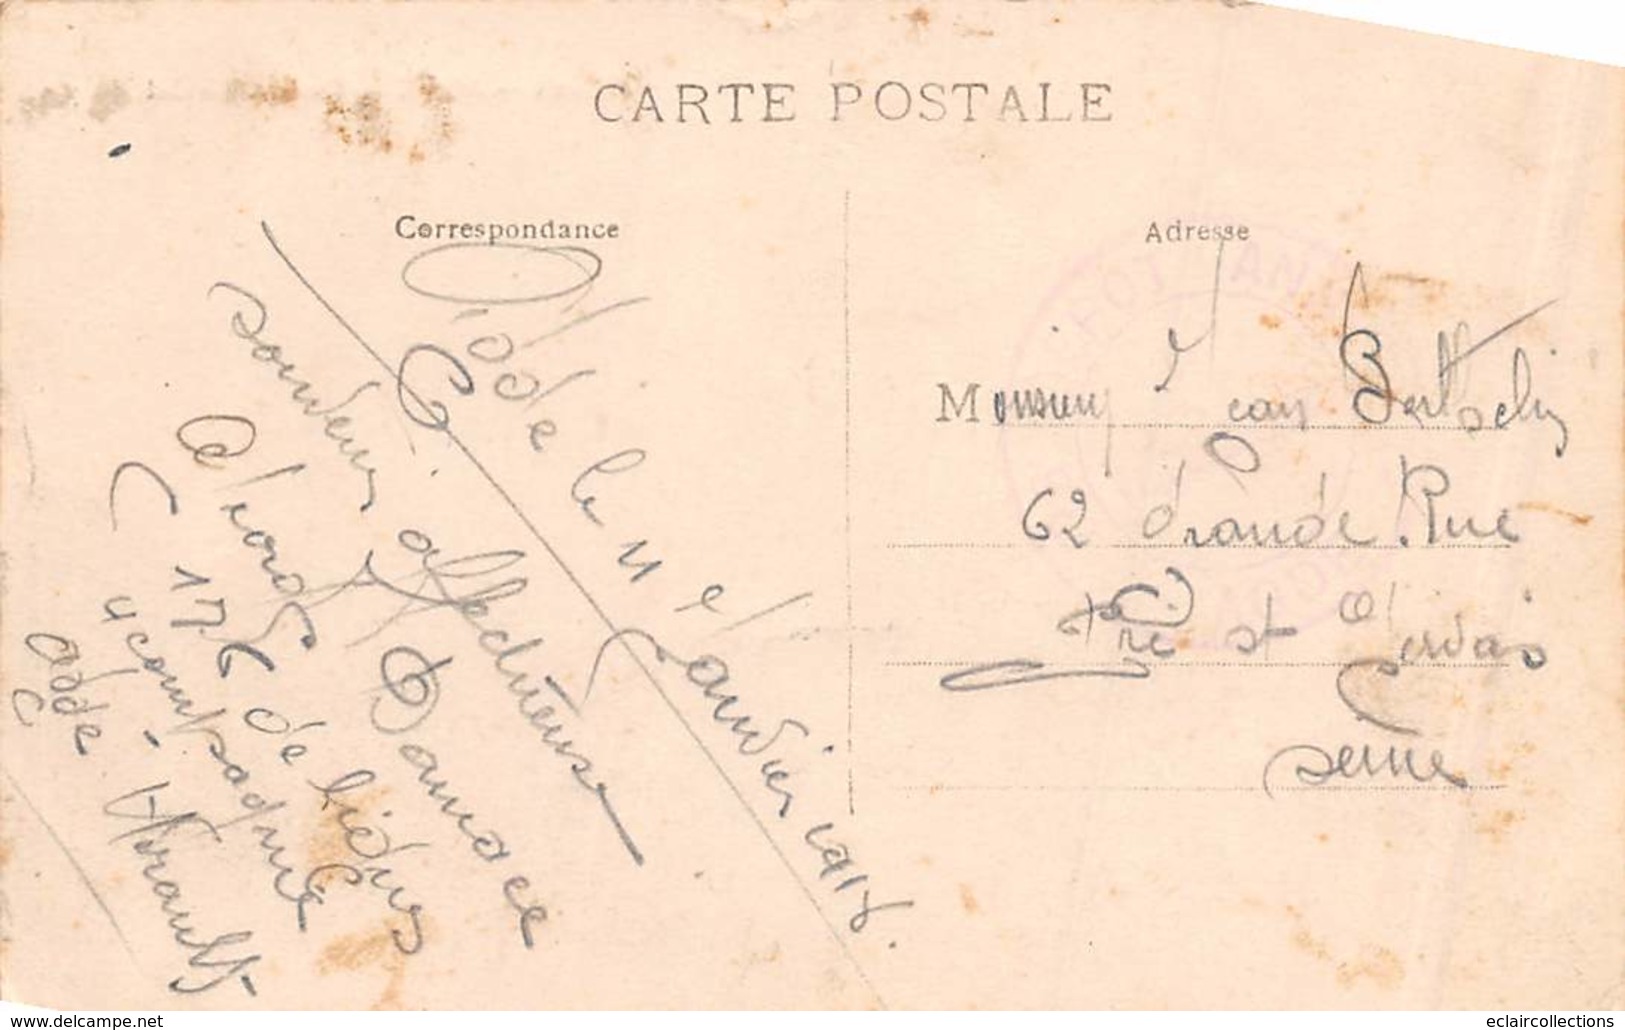 CARTE POSTALE
Correspondance
Agde le 11 Janvier 1916.
souvenir affectueuse
A Damace
176 de ligne
4 compagnie
agde - Hérault
Adresse
Monsieur Jean
62 Grande Rue
Pré st Gervais
Seine
www.delcampe.net
eclaircollections